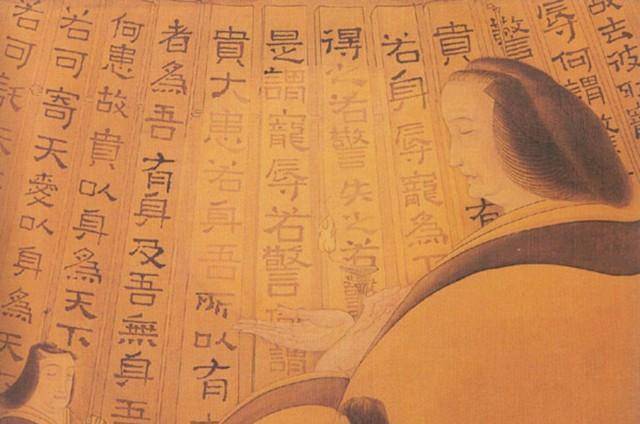 故去彼
辱何謂
警
有
貴
若身辱寵為下
得之若警失之若
是謂寵辱若警何謂
貴大患若身吾所以有
者為吾有身及吾無身吾
何患故貴以身為天下
若可寄天愛以身為天
若可託天